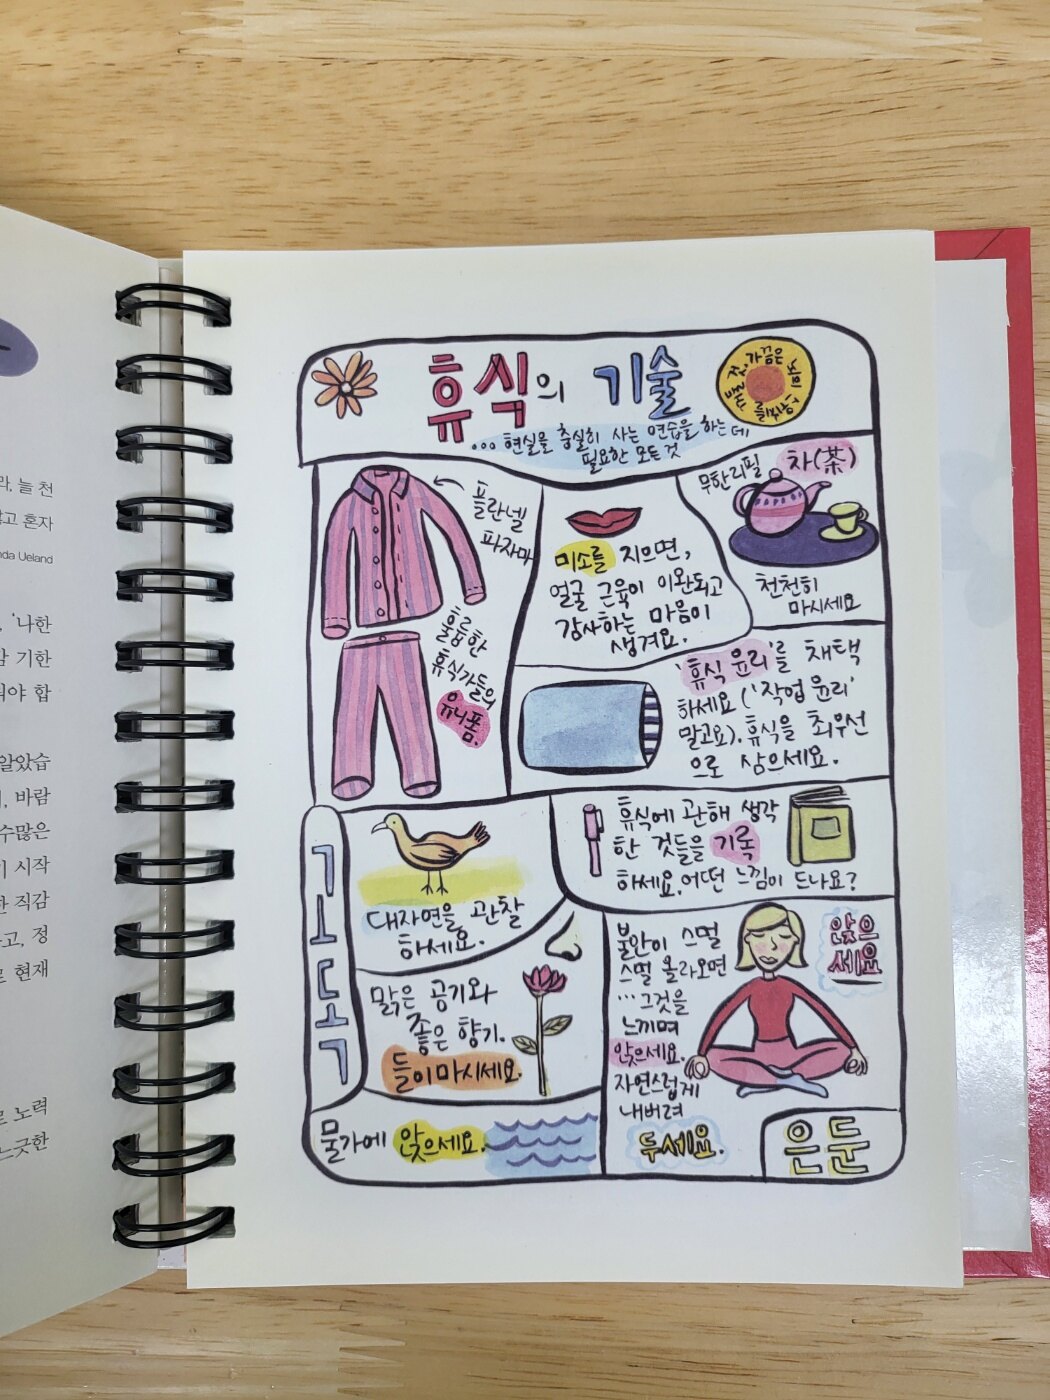 막, 늘 천
고 혼자
nda Ueland
'나한
감 기한
워야 합
알았습
, 바람
수많은
시작
한 직감
고, 정
로 현재
로 노력
느긋한
휴식의 기술
... 현실을 충실히 사는 연습을 하는데
필요한 모든 것
플란넬
파자마
훌륭한
휴식가들의
유니폼.
미소를 지으면,
얼굴 근육이 이완되고
감사하는 마음이
생겨요.
무한리필 차(茶)
천천히
마시세요
'휴식 윤리'를 채택
하세요 ('작업 윤리'
말고요). 휴식을 최우선
으로 삼으세요.
고독
대자연을 관찰
하세요.
휴식에 관해 생각
한 것들을 기록
하세요. 어떤 느낌이 드나요?
맑은 공기와
좋은 향기.
들이마시세요.
물가에 앉으세요.
불안이 스멀
스멀 올라오면
...그것을
느끼며
앉으세요.
자연스럽게
내버려
두세요.
앉으
세요
은둔